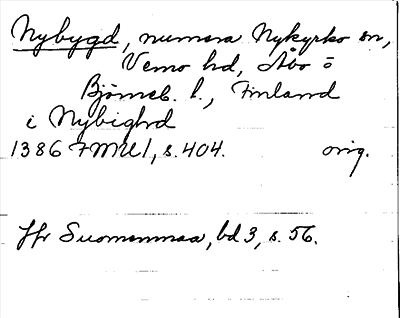 Nybygd, numera Nykyrko sn,
Vemo hd, Åbo o
Björneb. l., Finland
i Nybighd
1386 FMU 1, s. 404. orig.
Jfr Suomenmaa, bd 3, s. 56.